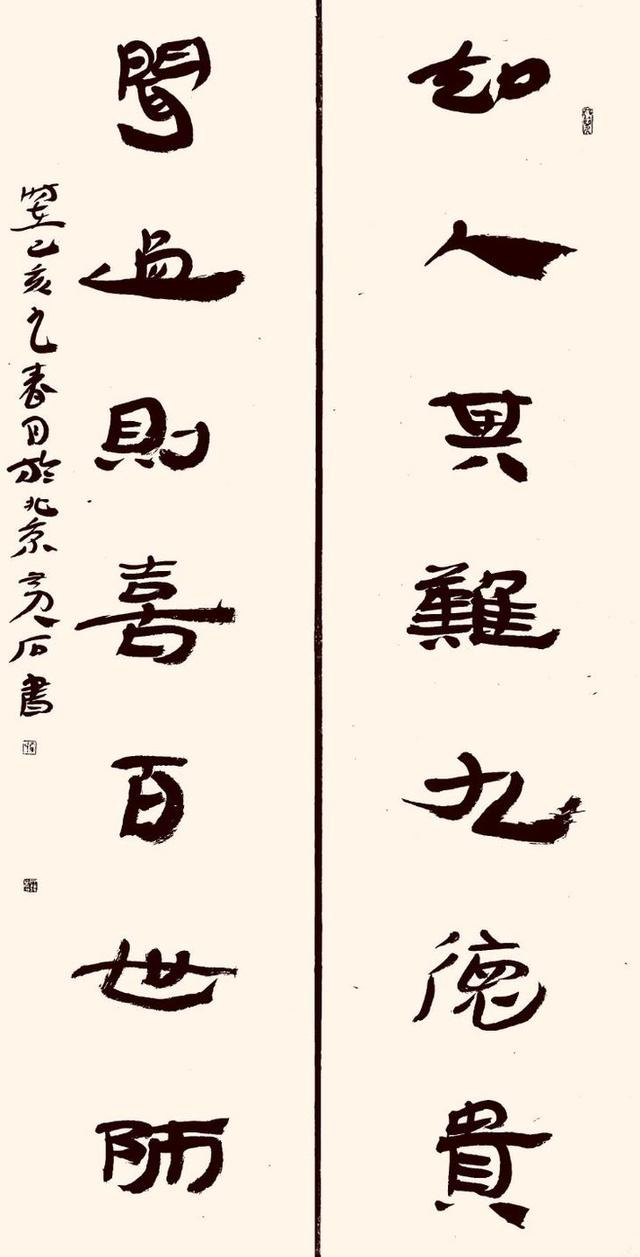 知人其難九德貴
聞過則喜百世師
時在己亥之春月於北京亮石書